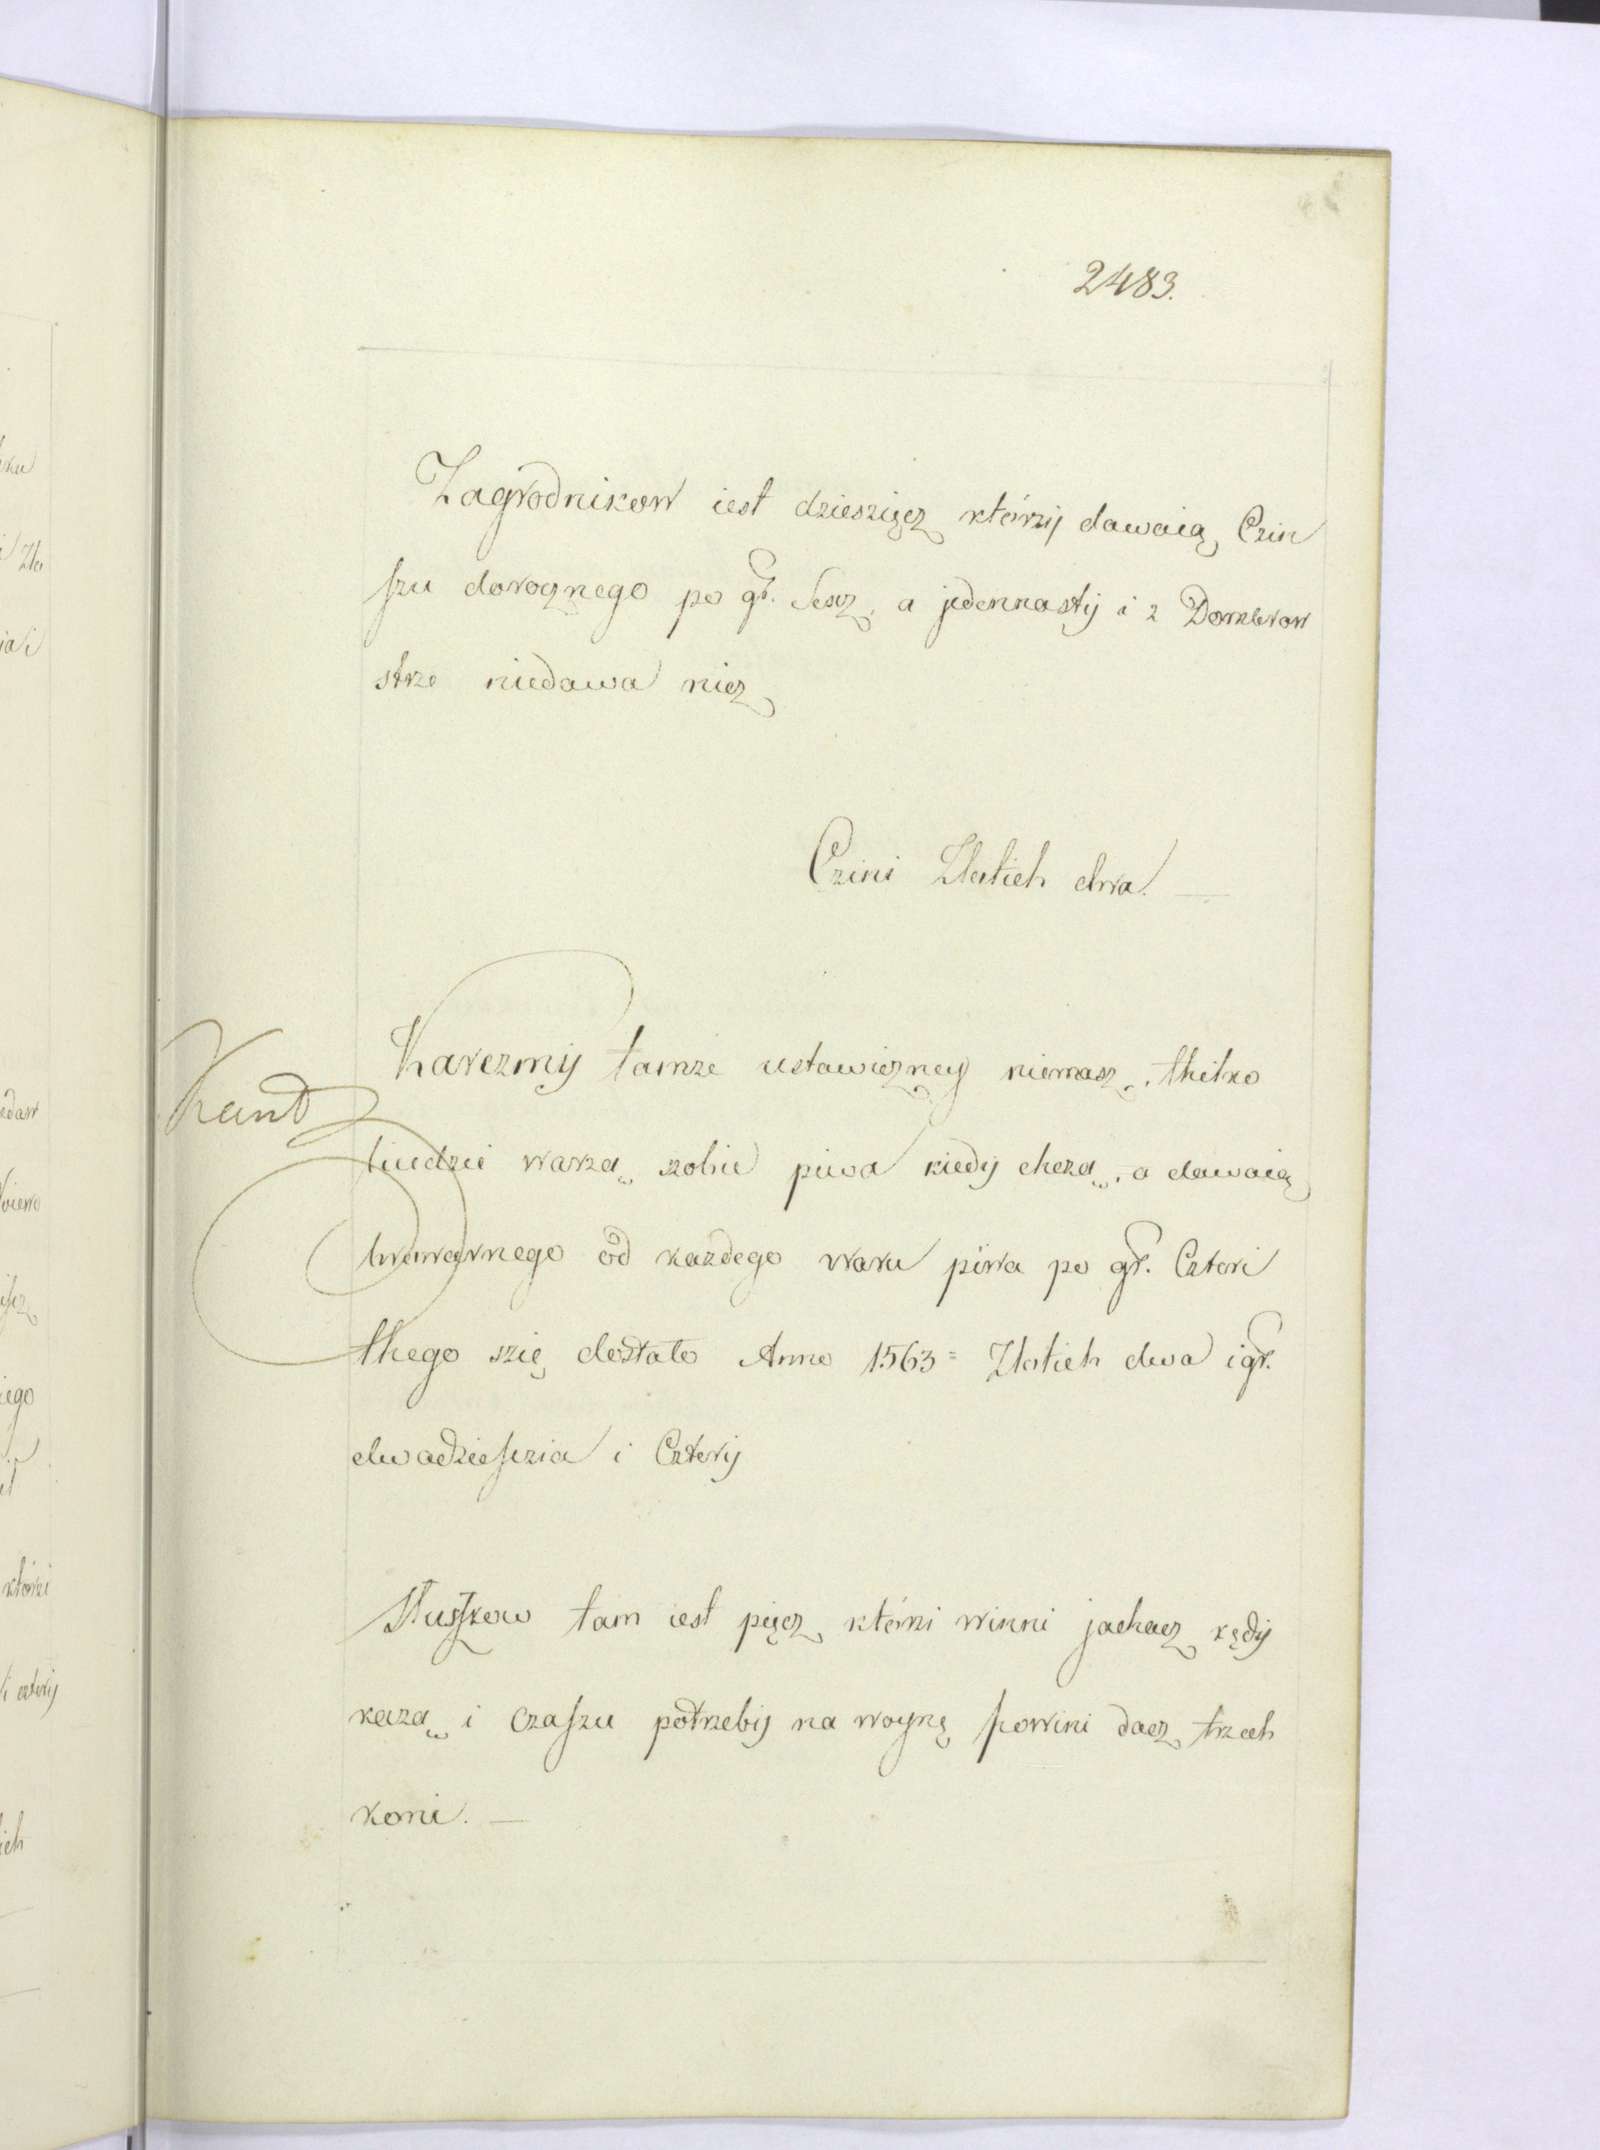 2483.
Zagrodnikow iest dziesziącz którzij dawaią Czin
szu dorocznego po gr. Sescz, a jedennastij i z Dombrow
strze niedawa nicz
Czini Zlotich dwa. —
Karczmij tamże ustawiczney niemasz, thilko
Kant
liudzie warzą szobie piwa kiedij chczą, a dawaią
browarnego od każdego waru piwa po gr. Czteri
thego szię dostało Anno 1563 = Zlotich dwa i gr.
dwadzieszcia i Czterij
Służkow tam iest pięcz, którzi winni jachacz kędij
każą i czaszu potrzebij na woynę powini dacz trzech
koni. —
ku
Zło
edaw
iego
którzi
i czterij
ich